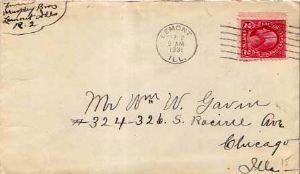 Bros
Lemont Ills
R. 2
LEMONT
9 AM
1931
ILL.
Mr Wm W. Gavin
#324-326. S. Racine Ave
Chicago
Ills